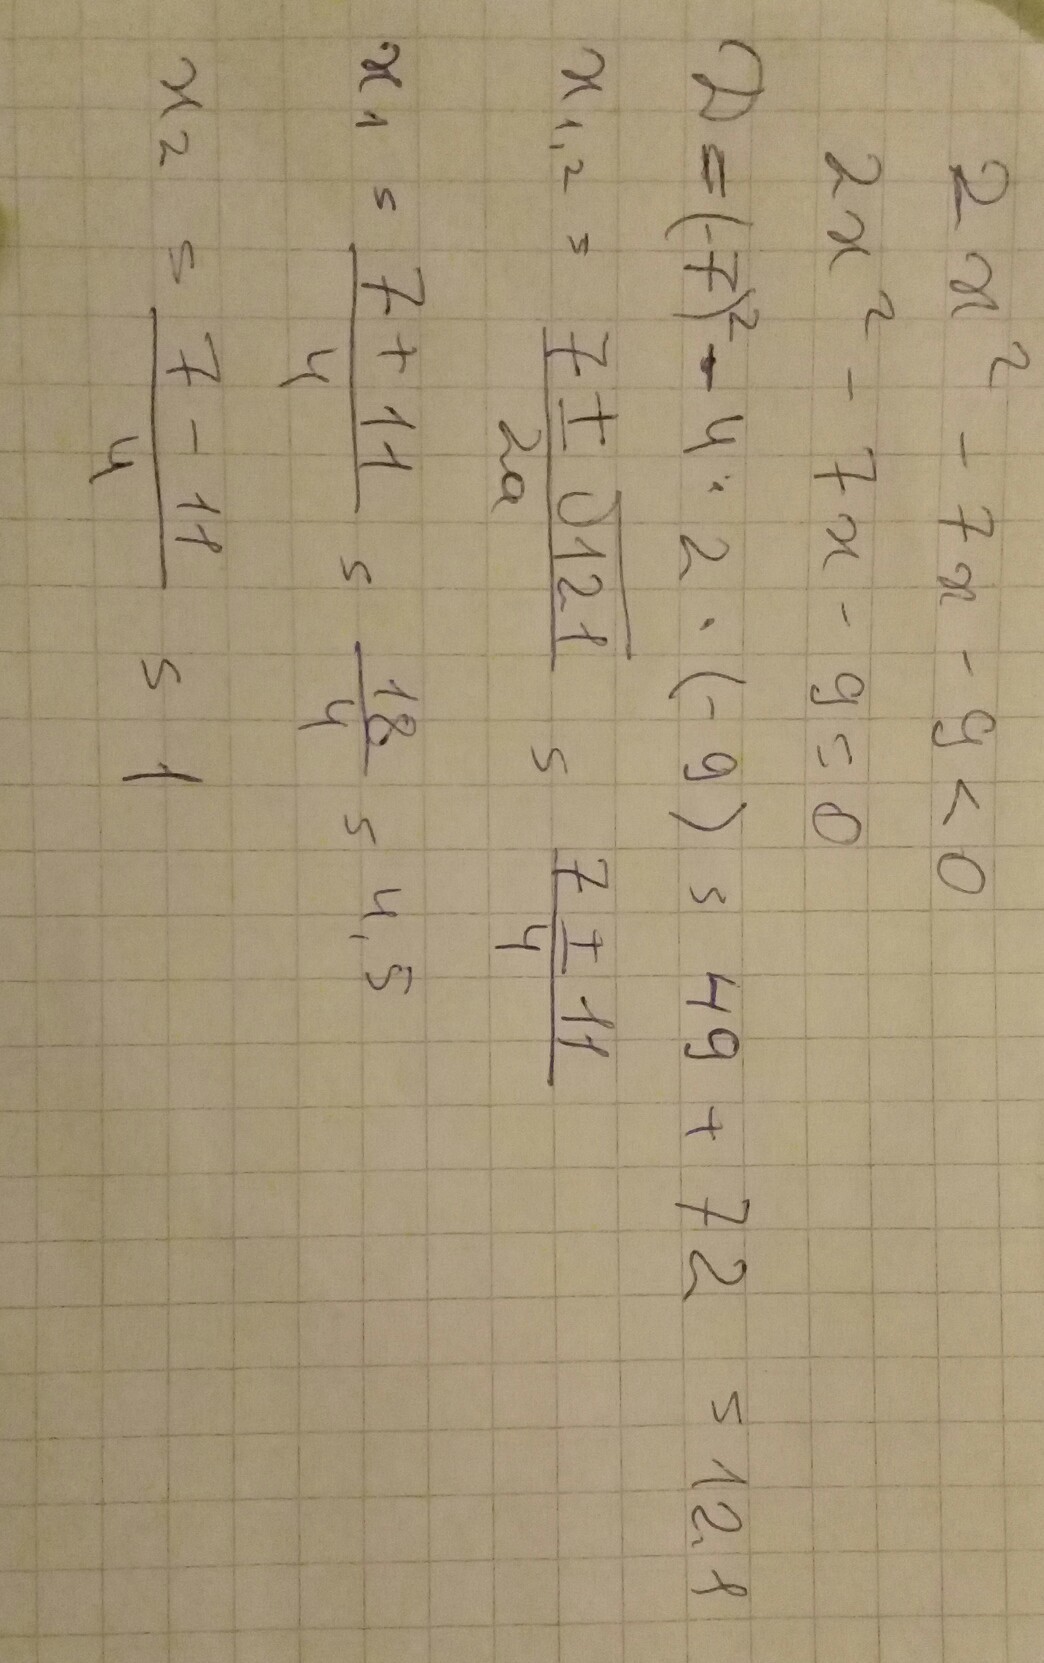 2x² - 7x - 9 < 0
2x² - 7x - 9 = 0
D = (-7)² - 4 · 2 · (-9) = 49 + 72 = 121
x₁,₂ = (7 ± √121)/2a = (7 ± 11)/4
x₁ = (7 + 11)/4 = 18/4 = 4,5
x₂ = (7 - 11)/4 = 1